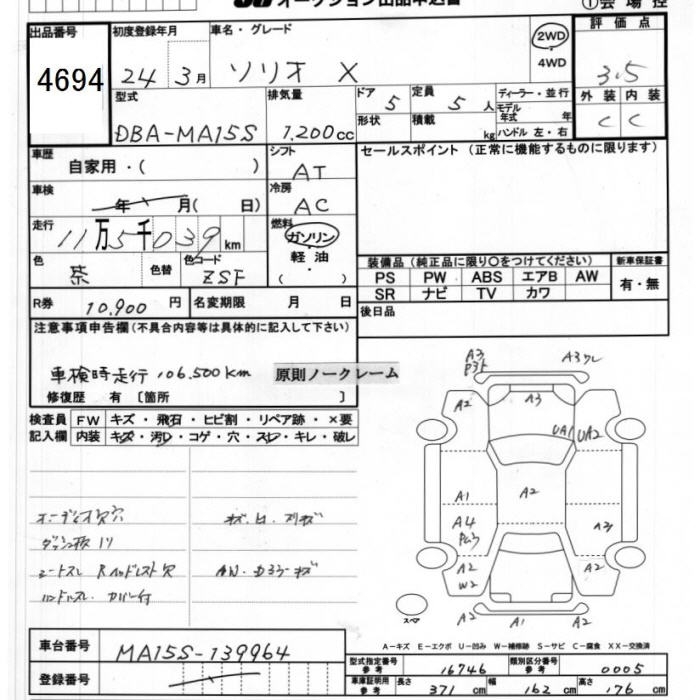 オークション出品申込書
①会場控
出品番号 初度登録年月 車名・グレード 2WD 評価点
4694 24 3月 ソリオ X 4WD 3.5
型式 排気量 ドア 5 定員 5人 ディーラー・並行 外装 内装
DBA-MA15S 1,200cc 形状 積載 kg モデル年式 年 C C
ハンドル 左・右
車歴 シフト セールスポイント (正常に機能するものに限ります)
自家用・( ) AT
車検 冷房
年 月(日) AC
走行 燃料
11万5千039km ガソリン
色 色替 色コード 軽油
紫 ZSF ・( )
装備品 (純正品に限り○をつけてください) 新車保証書
PS PW ABS エアB AW 有・無
SR ナビ TV カワ
R券 10,900円 名変期限 月 日 後日品
注意事項申告欄(不具合内容等は具体的に記入して下さい)
車検時走行 106,500km 原則ノークレーム
修復歴 有 [箇所 ]
検査員 FW キズ・飛石・ヒビ割・リペア跡・×要
記入欄 内装 キズ・汚レ・コゲ・穴・スレ・キレ・破レ
A3 A3
A2 A3 UA1 UA2
A1 A2
A4 A3
A2 W2 A2
A2 A1 A2
スペア
A=キズ E=エクボ U=凹み W=補修跡 S=サビ C=腐食 XX=交換済
車台番号 MA15S-139964
登録番号
型式指定番号 参考 16746 類別区分番号 参考 0005
車庫証明用 参考 長さ 371cm 幅 162cm 高さ 176cm